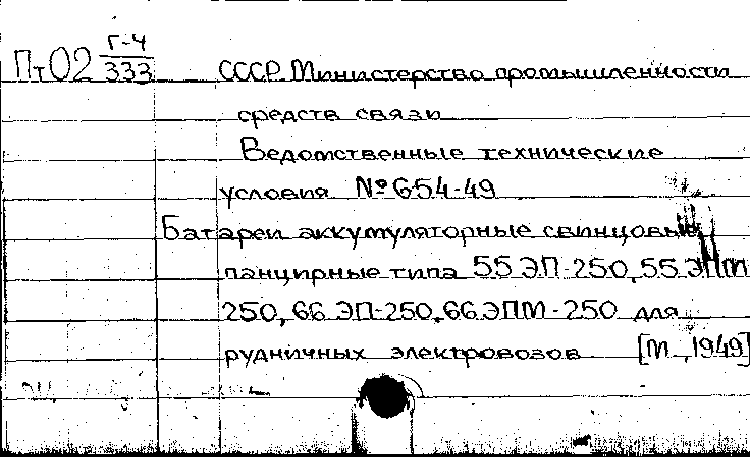 Пт02 Г-4/333 СССР. Министерство промышленности
средств связи
Ведомственные технические
условия №654-49
Батареи аккумуляторные свинцовые
панцирные типа 55 ЭП-250, 55 ЭПМ
250, 66 ЭП-250, 66 ЭПМ-250 для
рудничных электровозов [М., 1949]